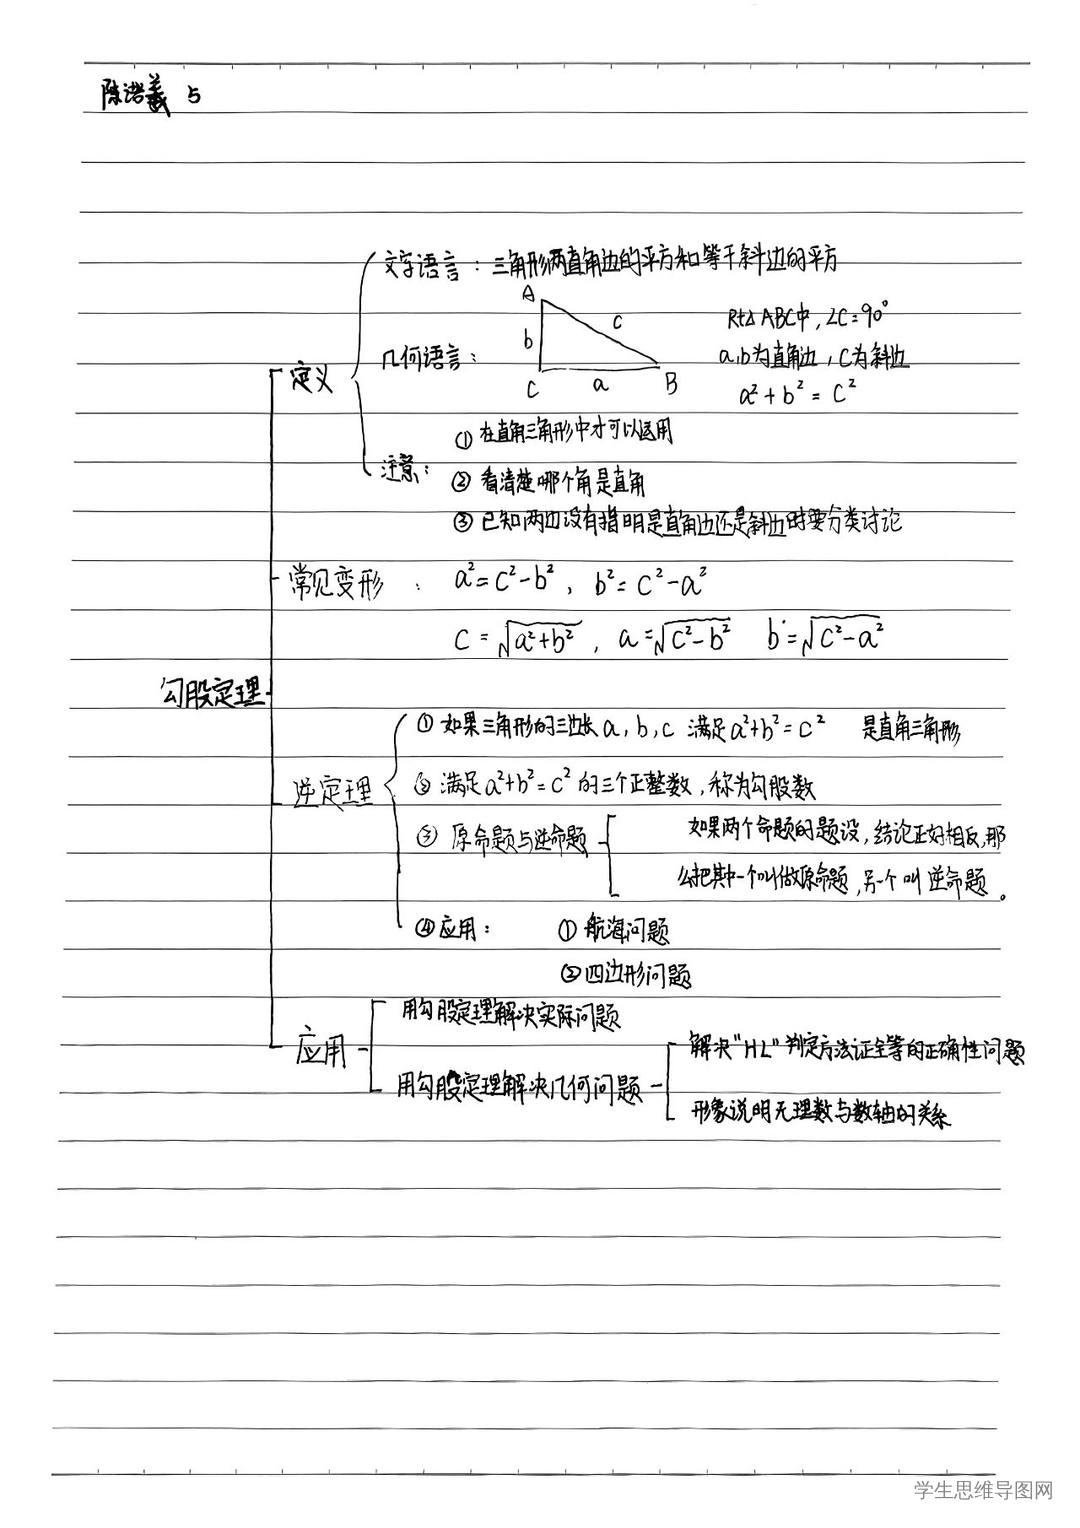 陈浩羲 5
文字语言：三角形两直角边的平方和等于斜边的平方
A
b
c
C
a
B
几何语言：
Rt△ABC中，∠C=90°
a,b为直角边，C为斜边
a²+b²=C²
定义
注意：
① 在直角三角形中才可以运用
② 看清楚哪个角是直角
③ 已知两边没有指明是直角边还是斜边时要分类讨论
常见变形：a²=c²-b²，b²=c²-a²
c=√a²+b²，a=√c²-b² b=√c²-a²
勾股定理
逆定理
① 如果三角形的三边长a,b,c 满足a²+b²=c² 是直角三角形
② 满足a²+b²=c²的三个正整数，称为勾股数
③ 原命题与逆命题
如果两个命题的题设，结论正好相反，那
么把其中一个叫做原命题，另一个叫逆命题。
④应用：① 航海问题
②四边形问题
应用
用勾股定理解决实际问题
用勾股定理解决几何问题
解决"HL"判定方法证全等的正确性问题
形象说明无理数与数轴的关系
学生思维导图网